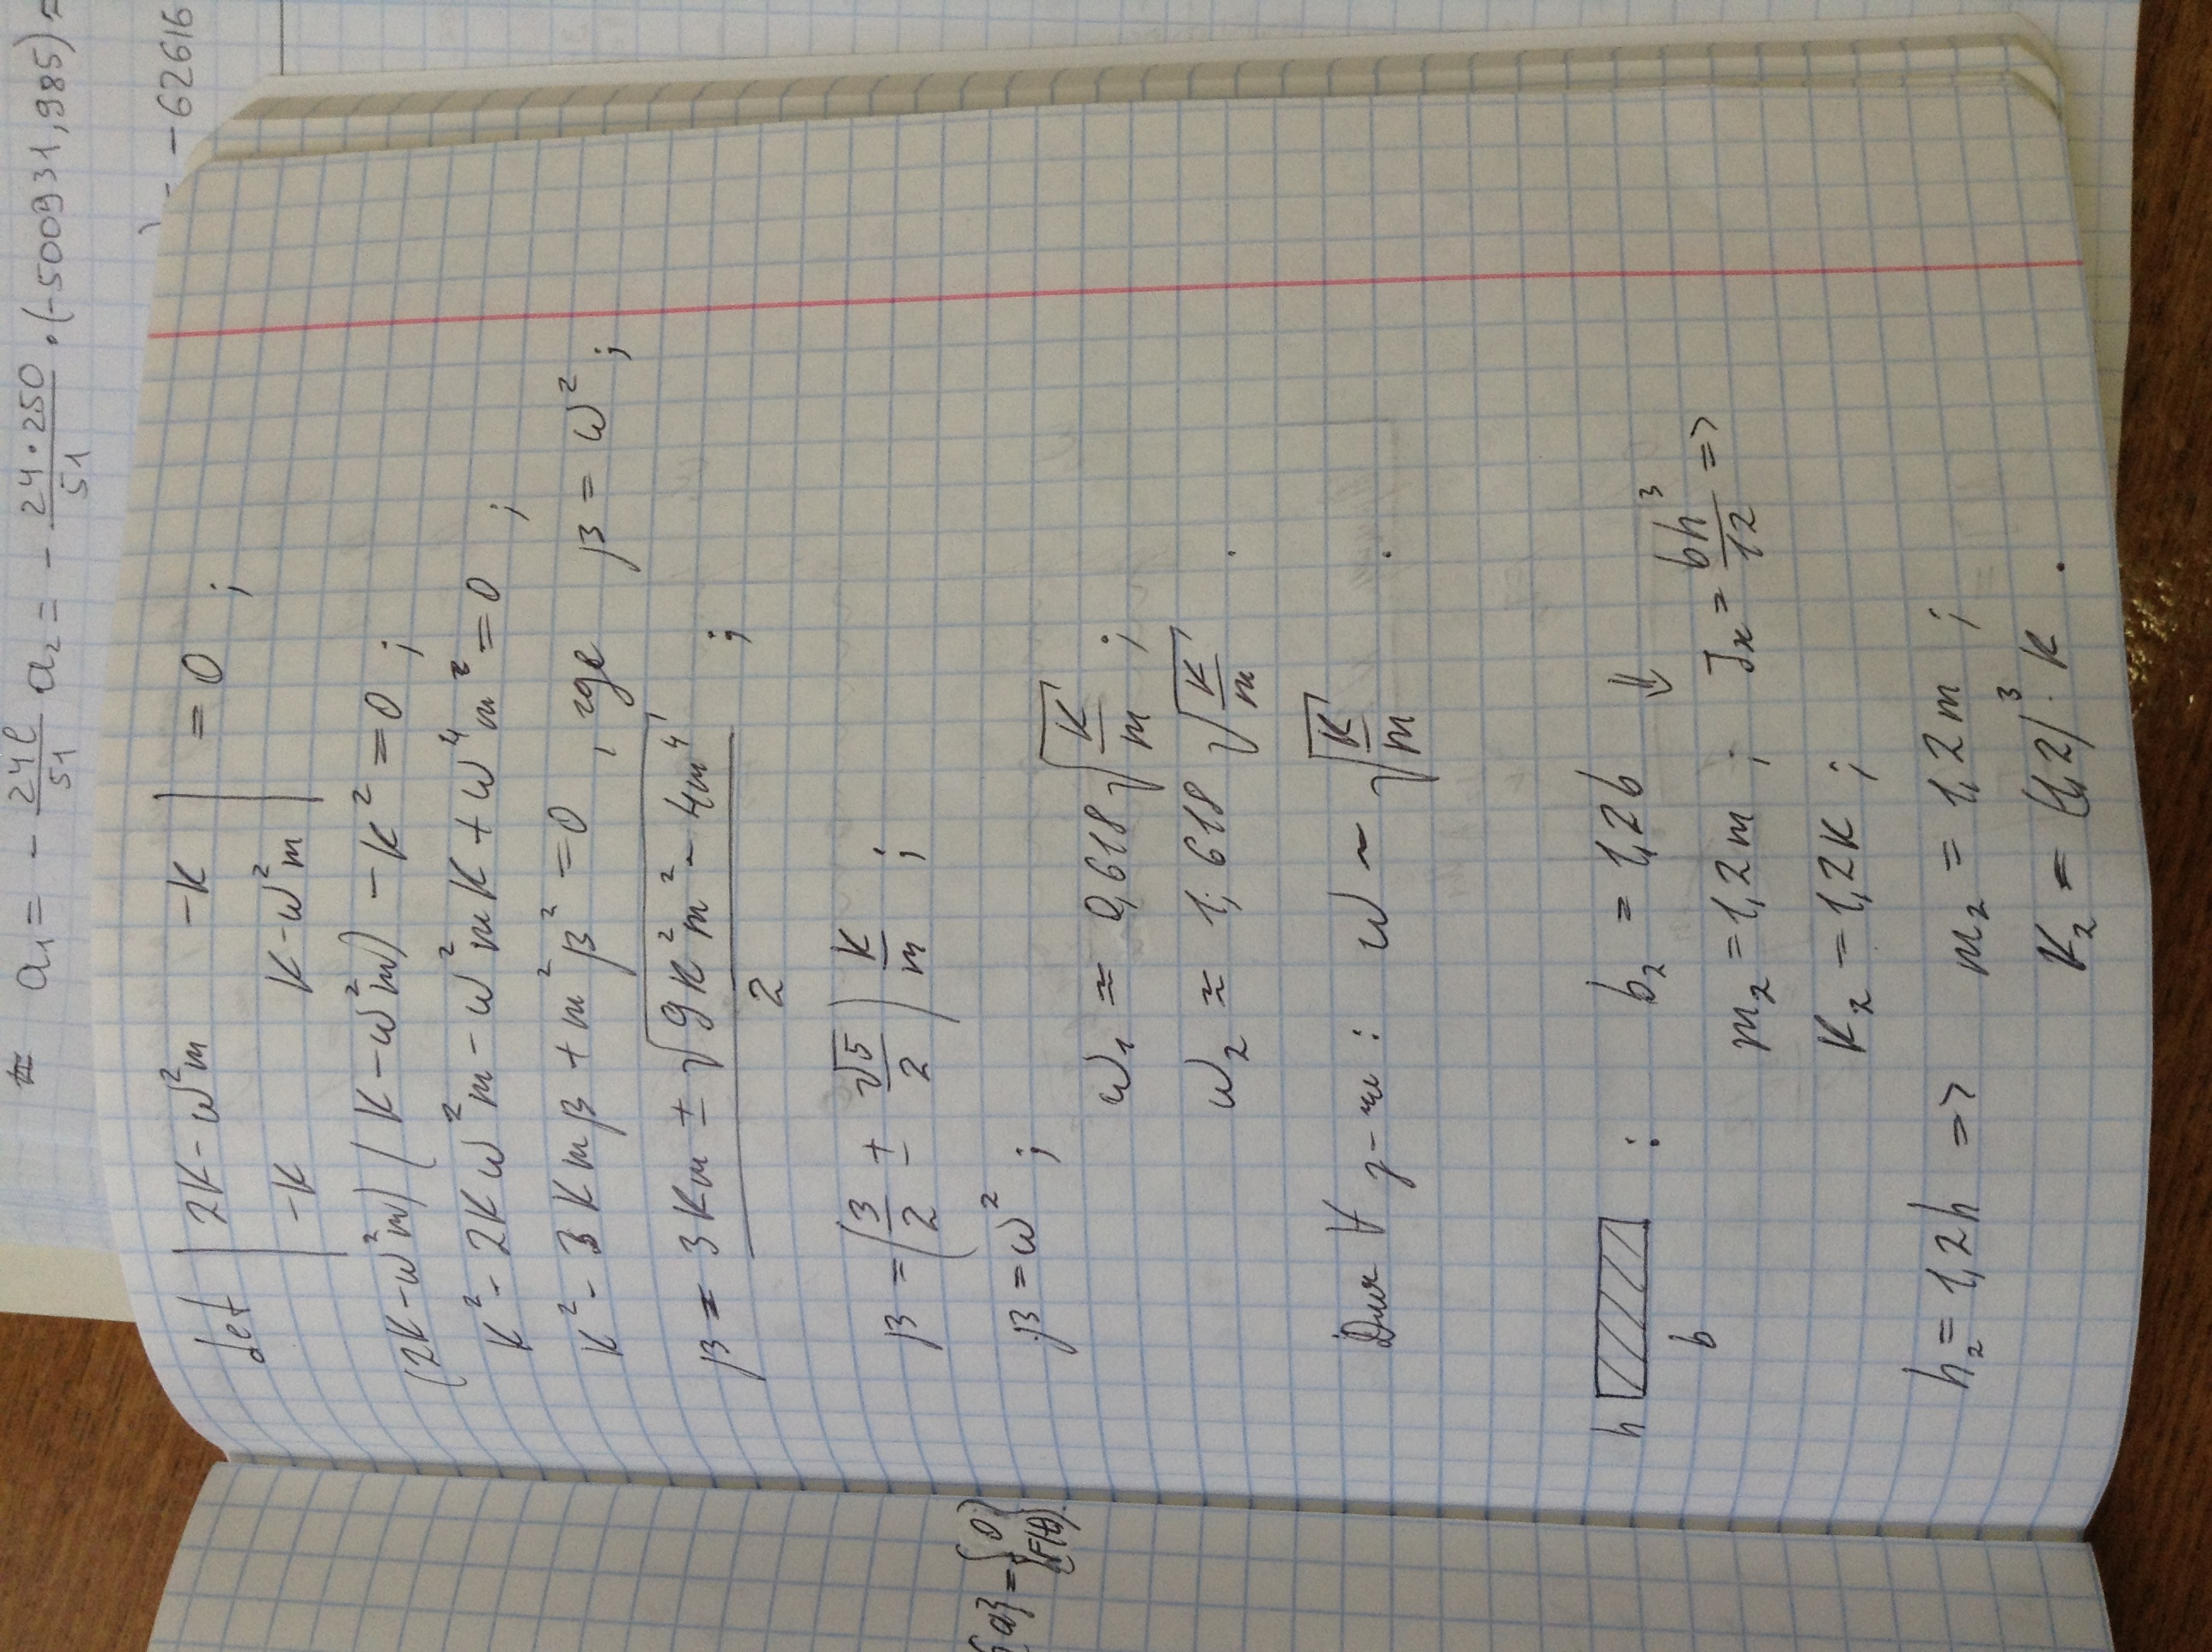 a₁ = - 24l/51 a₂ = - 24·250/51 · (-500931,985) =
- 62616
det | 2K-ω²m   -K |
| -K   K-ω²m | = 0 ;
(2K-ω²m) (K-ω²m) - K² = 0 ;
K² - 2Kω²m - ω²mK + ω⁴m² = 0 ;
K² - 3Kmβ + m²β² = 0 , где β = ω² ;
β = 3Km ± √(9K²m² - 4m⁴) / 2 ;
β = (3/2 ± √5/2) K/m ;
β = ω² ;
ω₁ ≈ 0,618 √(K/m) ;
ω₂ ≈ 1,618 √(K/m) .
Для ∀ з-чи : ω ~ √(K/m) .
h
b
: b₂ = 1,2b ⇓
m₂ = 1,2m ; Jx = bh³/12 =>
K₂ = 1,2K ;
h₂ = 1,2h => m₂ = 1,2m ;
K₂ = (1,2)³ · K .
{a} = {0
{F(t)}